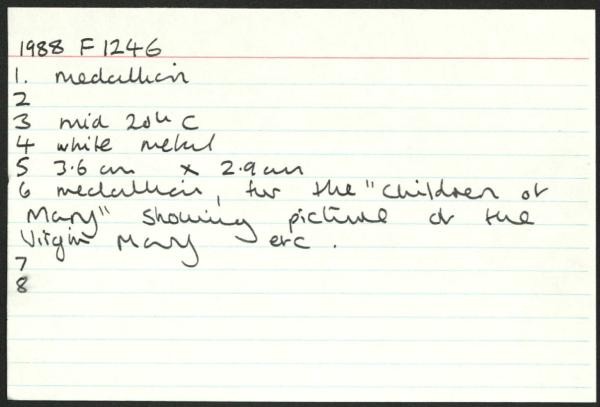 1988 F1246
1. medallion
2
3 mid 20th C
4 white metal
5 3.6 cm x 2.9 cm
6 medallion, for the "Children of
Mary" showing picture of the
Virgin Mary etc.
7
8